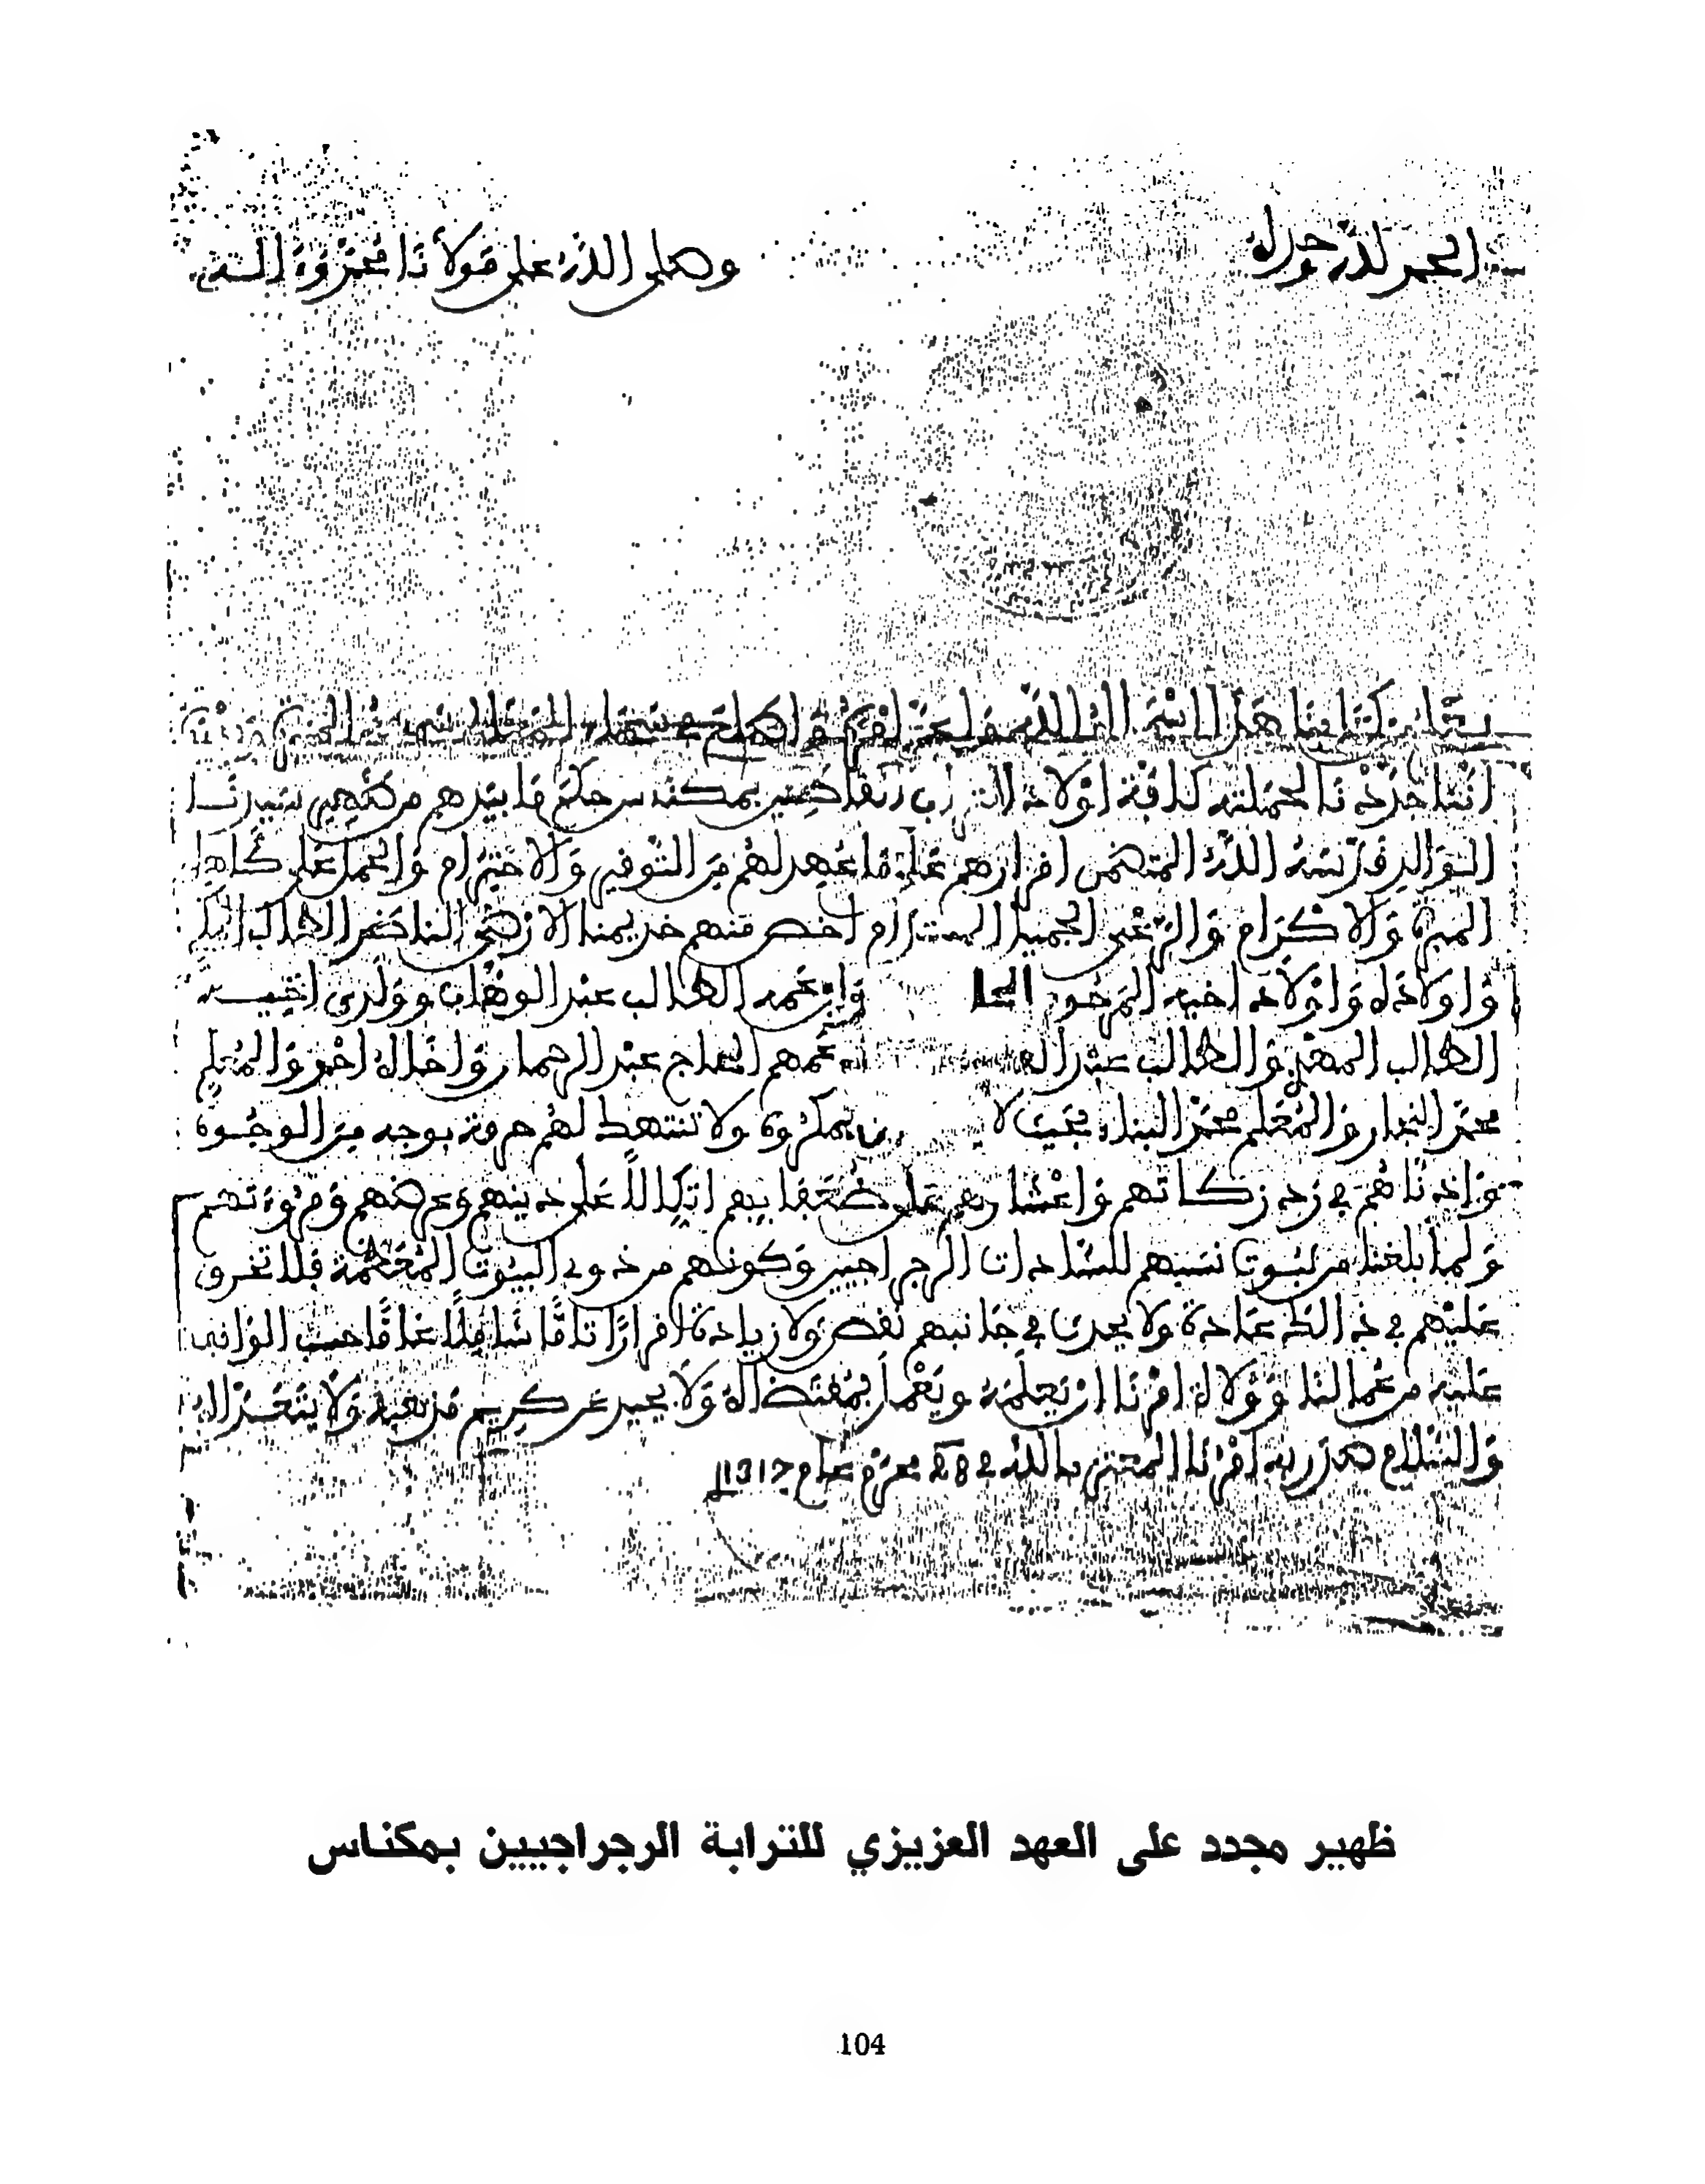 الحمد لله وحده
وصلى الله على مولانا محمد وءاله
يعلم من كتابنا هذا اسماه الله وأعز أمره
أننا جددنا لحملته كافة أولاد التراب بمكناسة حكم ما بيدهم من ظهير سيدنا
الوالد قدسه الله المتضمن إقرارهم على ما عهد لهم من التوقير والاحترام والحمل على كاهل
المبرة والاكرام والرعي الجميل المستدام أخص منهم خديمنا الأرضى الطالب
وأولاده وأولاد أخيه المرحوم وابن عمه الطالب عبد الوهاب وولدي أخيه
الطالب المهدي والطالب عبد عمهم الحاج عبد الرحمان وأخاك احمو والمعلم
محمد النجار والمعلم محمد البناء بحيث لا بمكروه ولا تنتهك لهم حرمة بوجه من الوجوه
وأذنا لهم في رد زكاتهم وأعشارهم على ضعفائهم اتكالا على دينهم وعرضهم ومروءتهم
ولما بلغنا من ثبوت نسبهم للسادات الرجراجيين وكونهم من ذوي البيوت المعظمة فلا تخرق
عليهم في ذالك عادة ولا يحدث في جانبهم نقص ولا زيادة إقرارا تاما شاملا عاما حسب الواقف
عليه من عمالنا وولاة أمرنا أن يعلمه ويعمل بمقتضاه ولا يحيد عن كريم مذهبه ولا يتعداه
والسلام صدر به أمرنا المعتز بالله في 28 محرم عام 1317
ظهير مجدد على العهد العزيزي للترابة الرجراجيين بمكناس
104